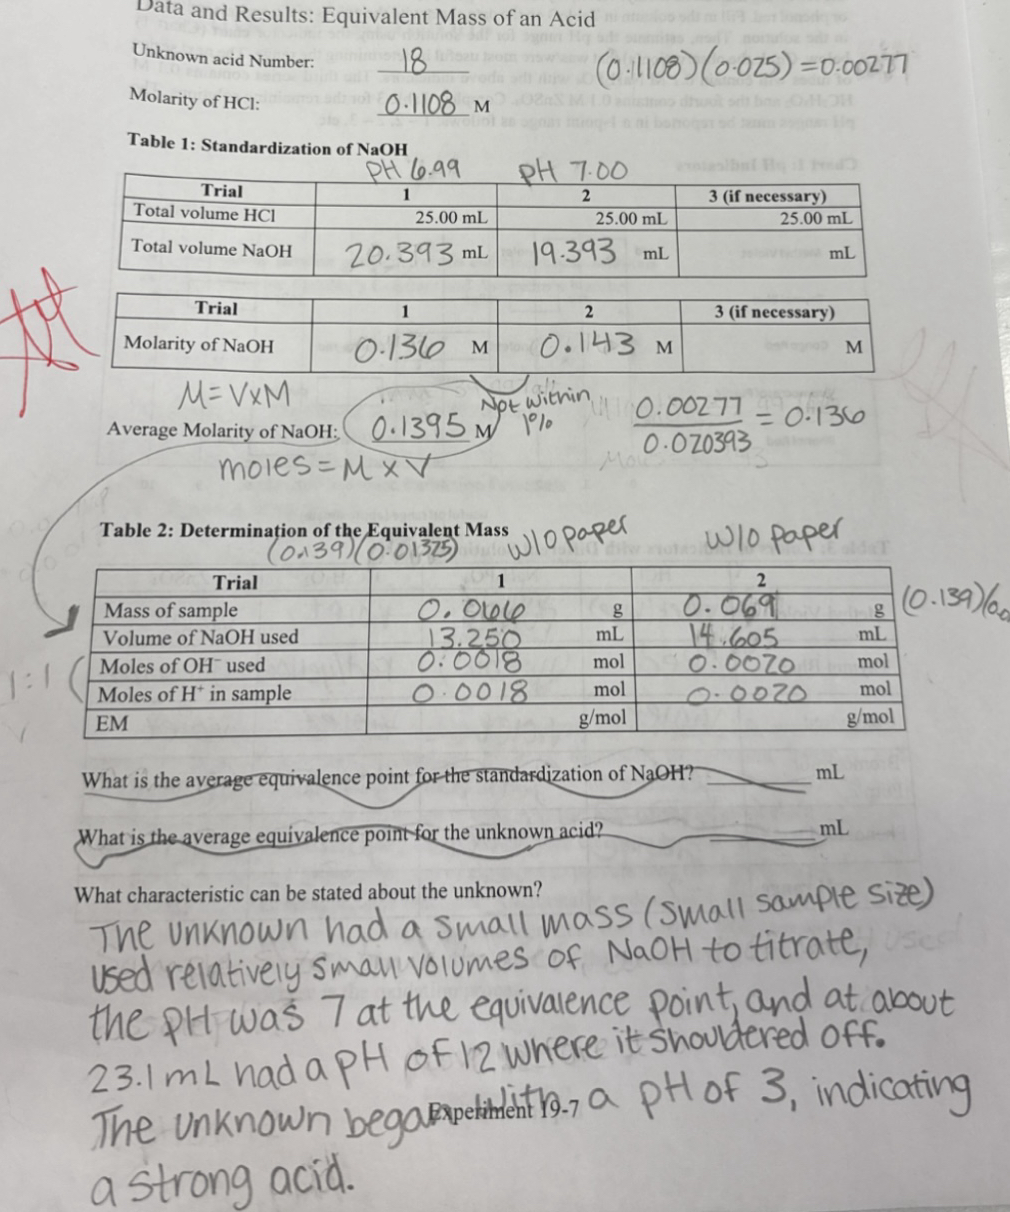 Data and Results: Equivalent Mass of an Acid
Unknown acid Number: 18
(0.11108)(0.025) = 0.00277
Molarity of HCl: 0.1108 M
Table 1: Standardization of NaOH
PH 6.99 PH 7.00
Trial 1 2 3 (if necessary)
Total volume HCl 25.00 mL 25.00 mL 25.00 mL
Total volume NaOH 20.393 mL 19.393 mL mL
Trial 1 2 3 (if necessary)
Molarity of NaOH 0.136 M 0.143 M M
M = V x M
Not within
1%
Average Molarity of NaOH: 0.1395 M
0.00277
0.020393
= 0.136
moles = M x V
Table 2: Determination of the Equivalent Mass
(0.139)(0.01325) W/O paper W/O paper
Trial 1 2
Mass of sample 0.066 g 0.069 g
(0.139)(0.0
Volume of NaOH used 13.250 mL 14.605 mL
Moles of OH⁻ used 0.0018 mol 0.0020 mol
1:1
Moles of H⁺ in sample 0.0018 mol 0.0020 mol
EM g/mol g/mol
What is the average equivalence point for the standardization of NaOH? mL
What is the average equivalence point for the unknown acid? mL
What characteristic can be stated about the unknown?
The unknown had a small mass (small sample size)
used relatively small volumes of NaOH to titrate,
the pH was 7 at the equivalence point, and at about
23.1 mL had a pH of 12 where it shouldered off.
The unknown began with a pH of 3, indicating
Experiment 19-7
a strong acid.